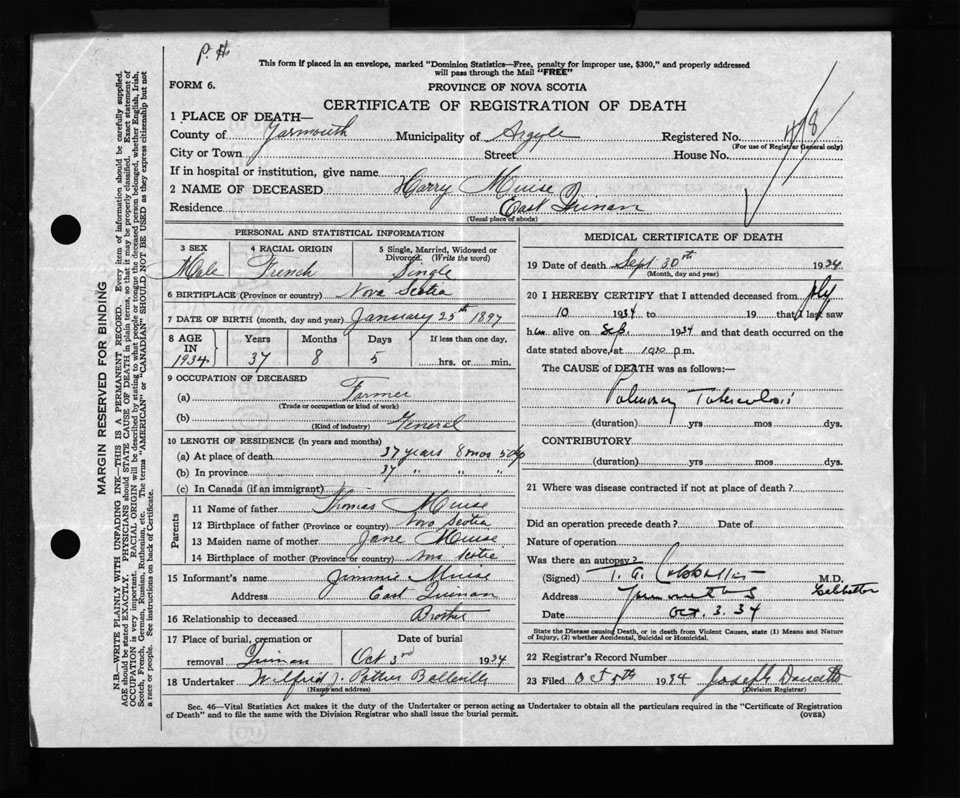 P.
This form if placed in an envelope, marked "Dominion Statistics—Free, penalty for improper use, $300," and properly addressed
will pass through the Mail "FREE"
FORM 6.
PROVINCE OF NOVA SCOTIA
CERTIFICATE OF REGISTRATION OF DEATH
1 PLACE OF DEATH—
County of Yarmouth Municipality of Argyle Registered No.
(For use of Registrar General only)
City or Town Street House No.
If in hospital or institution, give name
2 NAME OF DECEASED Harry Muise
Residence East Quinan
(Usual place of abode)
PERSONAL AND STATISTICAL INFORMATION
3 SEX 4 RACIAL ORIGIN 5 Single, Married, Widowed or
Divorced. (Write the word)
Male French Single
6 BIRTHPLACE (Province or country) Nova Scotia
7 DATE OF BIRTH (month, day and year) January 25th 1897
8 AGE IN 1934 Years Months Days If less than one day,
37 8 5 hrs. or min.
9 OCCUPATION OF DECEASED
(a) Farmer
(Trade or occupation or kind of work)
(b) General
(Kind of industry)
10 LENGTH OF RESIDENCE (in years and months)
(a) At place of death 37 years 8 mos 5
(b) In province 37 " " "
(c) In Canada (if an immigrant)
Parents
11 Name of father Thomas Muise
12 Birthplace of father (Province or country) Nova Scotia
13 Maiden name of mother Jane Muise
14 Birthplace of mother (Province or country) Scotia
15 Informant's name Jimmie Muise
Address East Quinan
16 Relationship to deceased Brother
17 Place of burial, cremation or Date of burial
removal Quinan Oct 3rd 1934
18 Undertaker Wilfred J. Pothier Belleville
(Name and address)
MEDICAL CERTIFICATE OF DEATH
19 Date of death Sept 30th 1934
(Month, day and year)
20 I HEREBY CERTIFY that I attended deceased from July
10 1934 to 19 that I last saw
h alive on Sep. 1934 and that death occurred on
date stated above, at p.m.
The CAUSE of DEATH was as follows:—
Pulmonary Tuberculosis
(duration) yrs mos dys.
CONTRIBUTORY
(duration) yrs mos dys.
21 Where was disease contracted if not at place of death?
Did an operation precede death? Date of
Nature of operation
Was there an autopsy?
(Signed) T. A. M.D.
Address
Date Oct. 3. 34
State the Disease causing Death, or in death from Violent Causes, state (1) Means and Nature
of Injury, (2) whether Accidental, Suicidal or Homicidal.
22 Registrar's Record Number
23 Filed Oct 1934 Joseph
(Division Registrar)
Sec. 46—Vital Statistics Act makes it the duty of the Undertaker or person acting as Undertaker to obtain all the particulars required in the "Certificate of Registration
of Death" and to file the same with the Division Registrar who shall issue the burial permit.
(OVER)
MARGIN RESERVED FOR BINDING
N.B.—WRITE PLAINLY WITH UNFADING INK—THIS IS A PERMANENT RECORD. Every item of information should be carefully supplied.
AGE should be stated EXACTLY. PHYSICIANS should STATE CAUSE OF DEATH in plain terms, so that it may be properly classified. Exact statement of
OCCUPATION is very important. RACIAL ORIGIN will be described by stating to what people or tongue the deceased person belonged, whether English, Irish,
Scotch, French, German, Russian, Ruthenian, etc. The terms "AMERICAN" or "CANADIAN" SHOULD NOT BE USED as they express citizenship but not
a race or people. See instructions on back of Certificate.